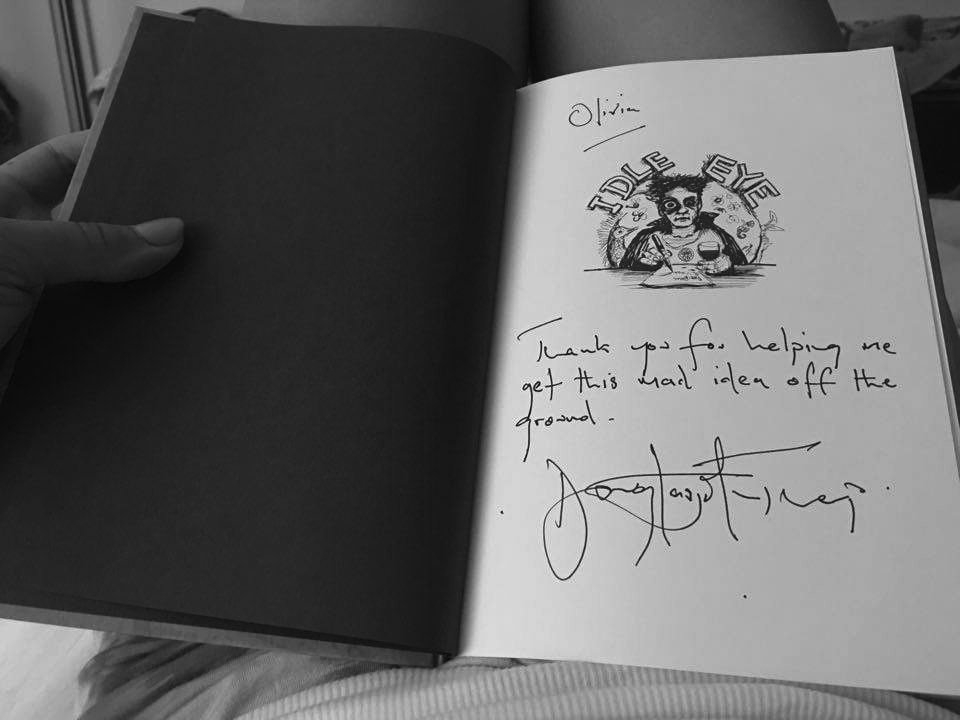 Olivia
IDLE EYE
Thank you for helping me
get this mad idea off the
ground.